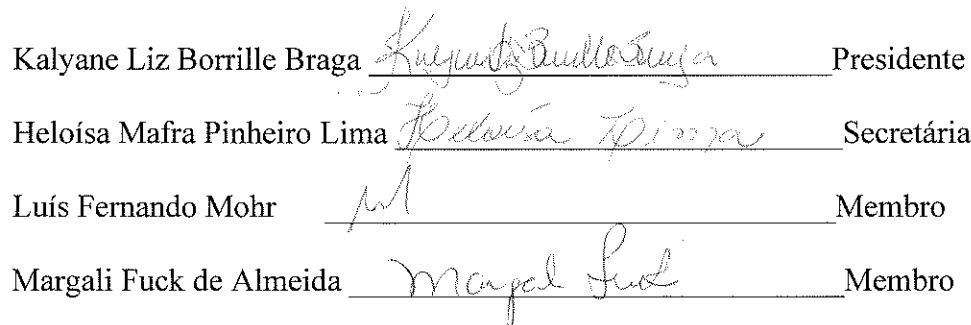 Kalyane Liz Borrille Braga Presidente
Heloísa Mafra Pinheiro Lima Heloísa Secretária
Luís Fernando Mohr Membro
Margali Fuck de Almeida Margali Fuck Membro